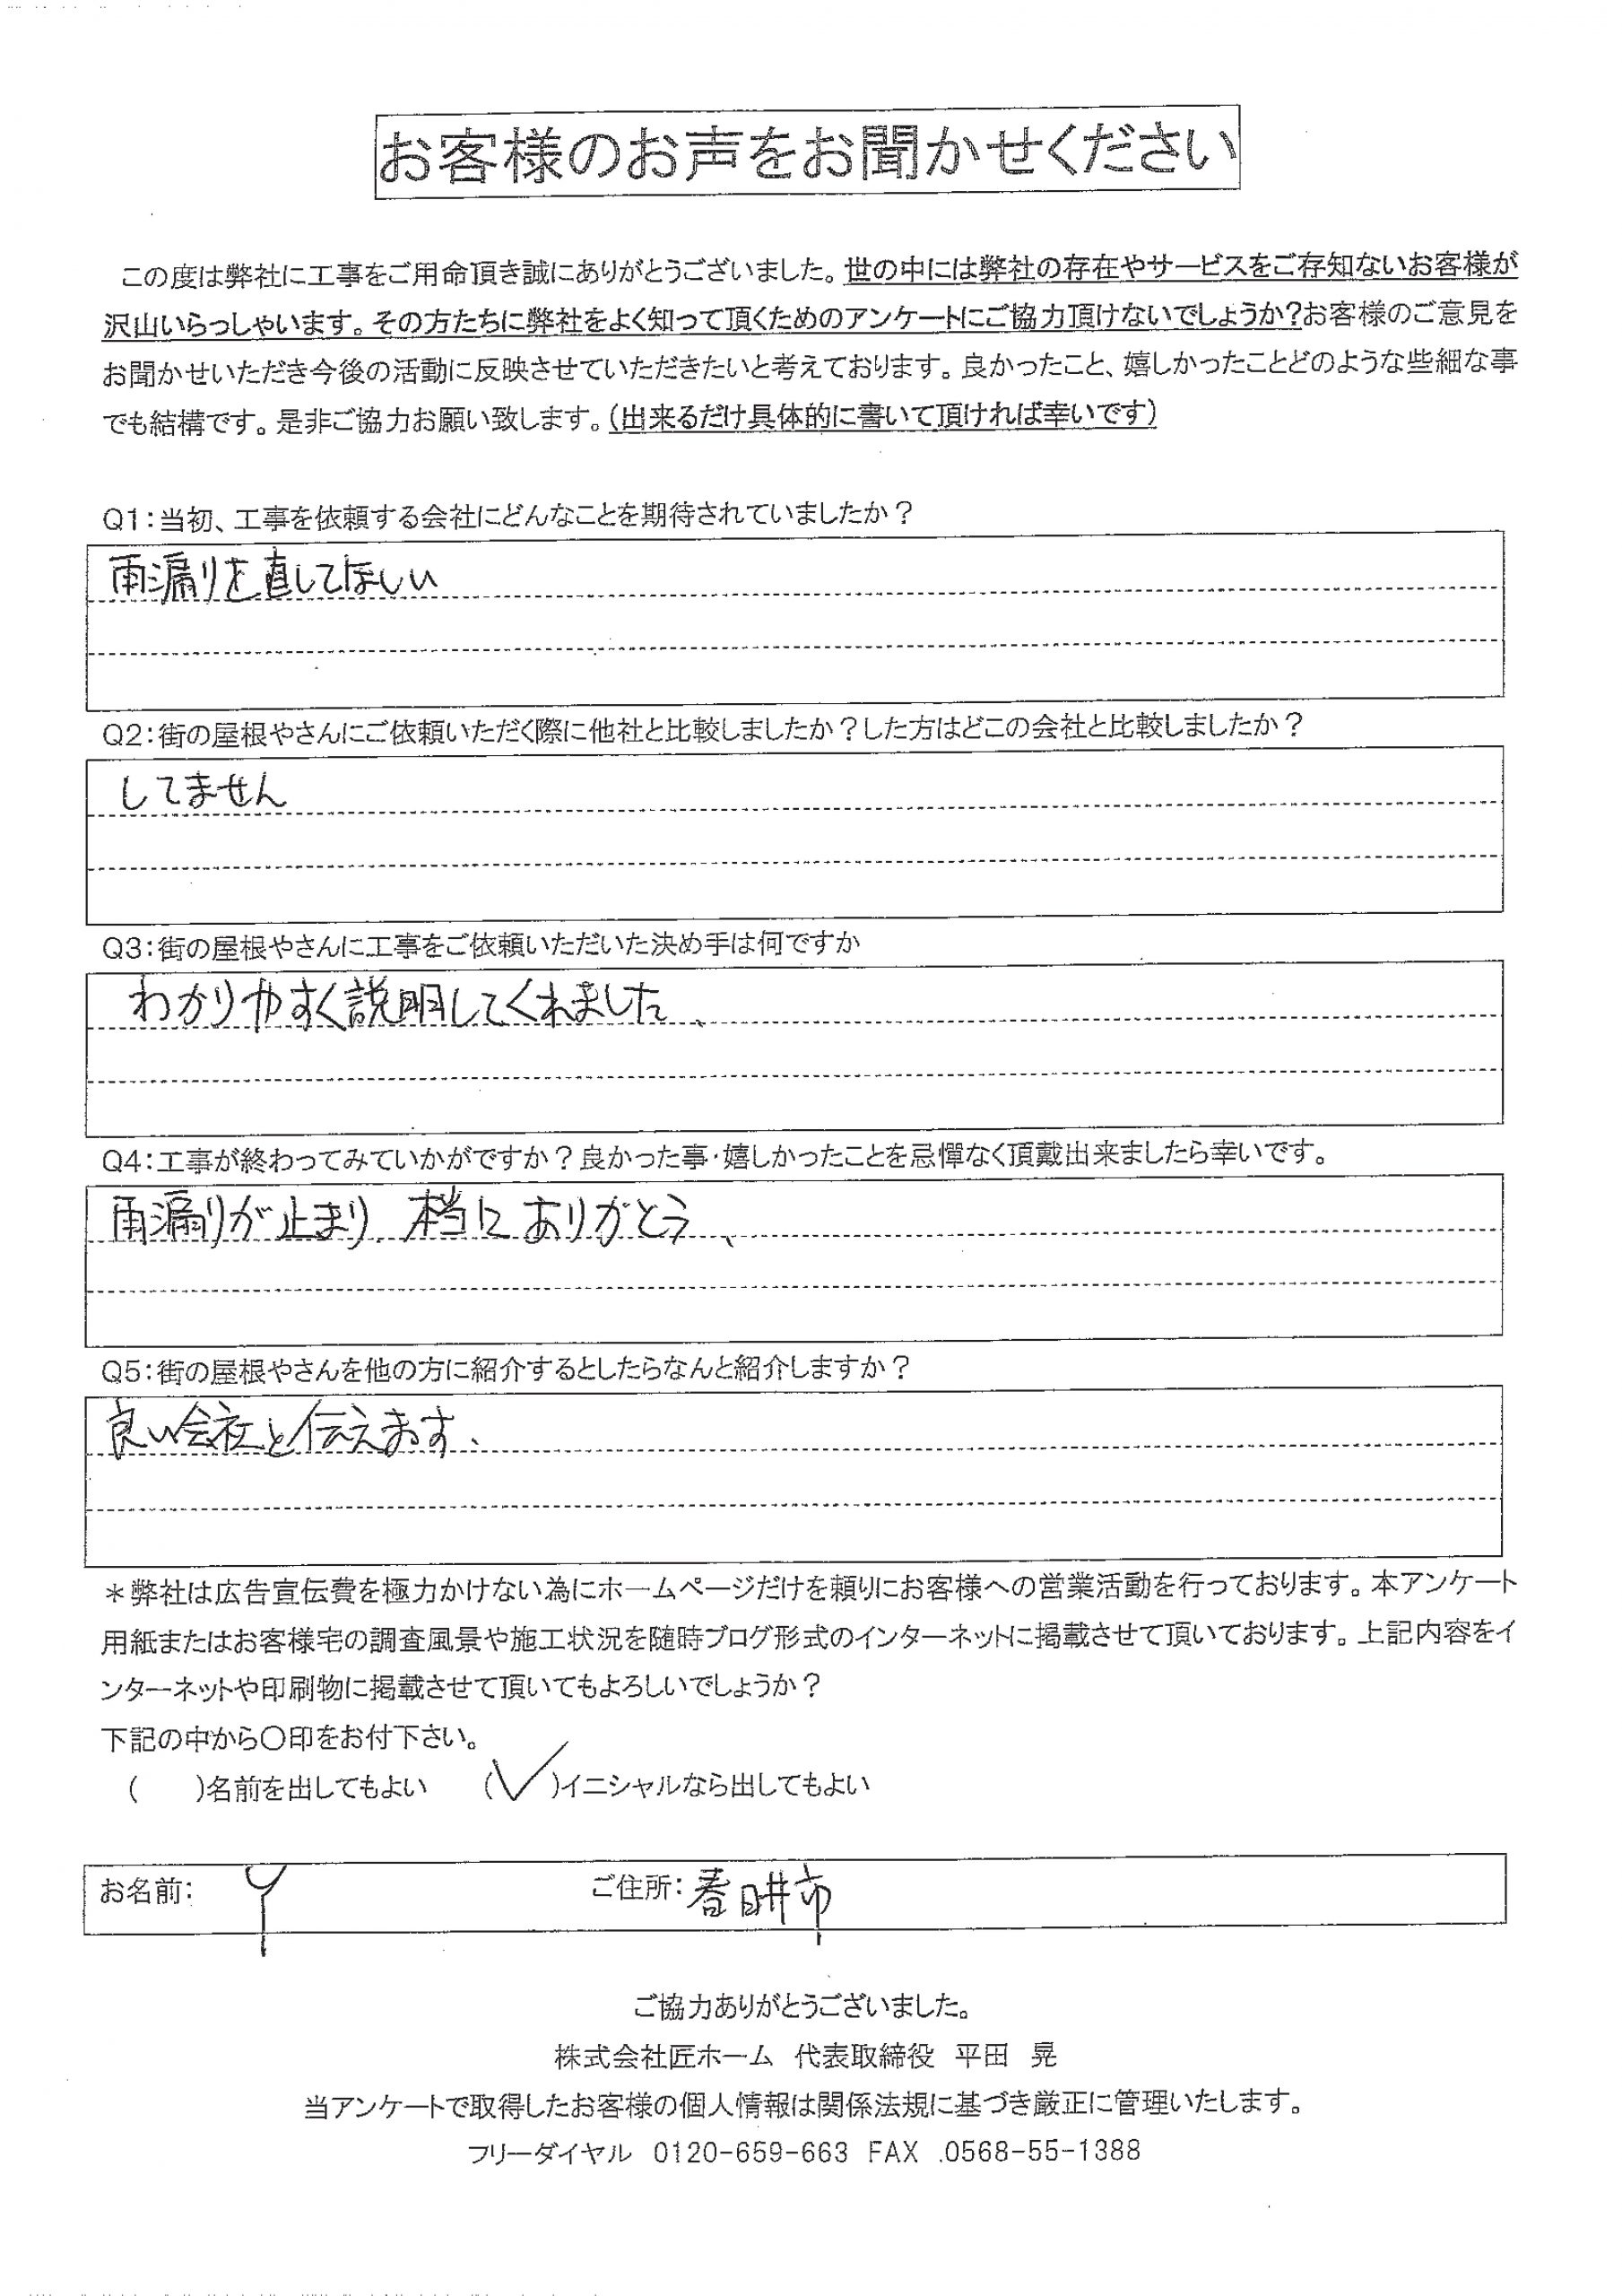 お客様のお声をお聞かせください
この度は弊社に工事をご用命頂き誠にありがとうございました。世の中には弊社の存在やサービスをご存知ないお客様が
沢山いらっしゃいます。その方たちに弊社をよく知って頂くためのアンケートにご協力頂けないでしょうか?お客様のご意見を
お聞かせいただき今後の活動に反映させていただきたいと考えております。良かったこと、嬉しかったことどのような些細な事
でも結構です。是非ご協力お願い致します。(出来るだけ具体的に書いて頂ければ幸いです)
Q1:当初、工事を依頼する会社にどんなことを期待されていましたか?
雨漏りを直してほしい
Q2:街の屋根やさんにご依頼いただく際に他社と比較しましたか?した方はどこの会社と比較しましたか?
してません
Q3:街の屋根やさんに工事をご依頼いただいた決め手は何ですか
わかりやすく説明してくれました、
Q4:工事が終わってみていかがですか?良かった事・嬉しかったことを忌憚なく頂戴出来ましたら幸いです。
雨漏りが止まり、本当にありがとう、
Q5:街の屋根やさんを他の方に紹介するとしたらなんと紹介しますか?
良い会社と伝えます、
*弊社は広告宣伝費を極力かけない為にホームページだけを頼りにお客様への営業活動を行っております。本アンケート
用紙またはお客様宅の調査風景や施工状況を随時ブログ形式のインターネットに掲載させて頂いております。上記内容をイ
ンターネットや印刷物に掲載させて頂いてもよろしいでしょうか?
下記の中から〇印をお付下さい。
(　　)名前を出してもよい　(✓)イニシャルなら出してもよい
お名前: Y　ご住所:春日井市
ご協力ありがとうございました。
株式会社匠ホーム 代表取締役 平田 晃
当アンケートで取得したお客様の個人情報は関係法規に基づき厳正に管理いたします。
フリーダイヤル 0120-659-663 FAX .0568-55-1388